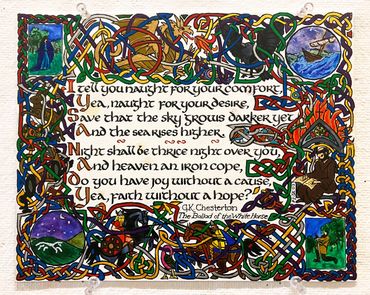 I tell you naught for your comfort,
Yea, naught for your desire,
Save that the sky grows darker yet
And the sea rises higher.
Night shall be thrice night over you,
And heaven an iron cope,
Do you have joy without a cause,
Yea, faith without a hope?
G.K. Chesterton
The Ballad of the White Horse